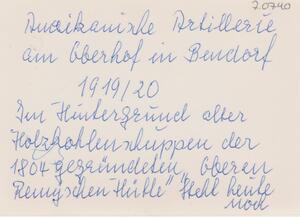 7.0740
Amerikanische Artillerie
am Oberhof in Bendorf
1919/20
Im Hintergrund alter
Holzkohlenschuppen der
1804 gegründeten „Oberen
Remy'schen Hütte" Steht heute
noch